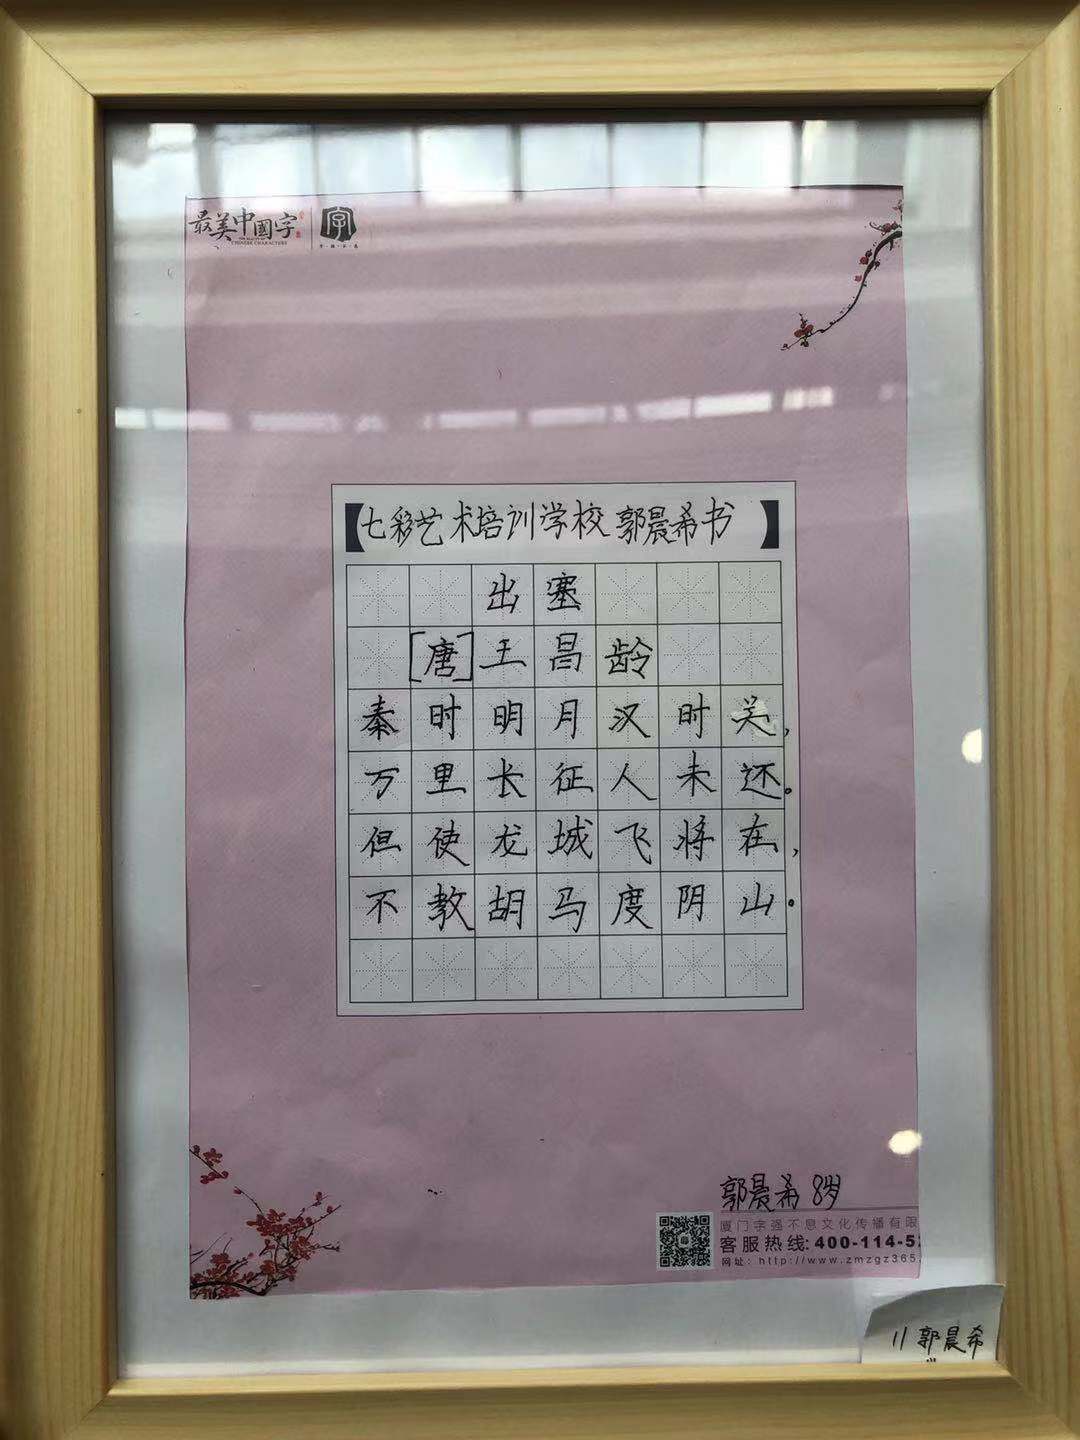 最美中國字
CHINESE CHARACTERS
字
七彩艺术培训学校 郭晨希书
出塞
[唐]王昌龄
秦时明月汉时关,
万里长征人未还。
但使龙城飞将在,
不教胡马度阴山。
郭晨希 8岁
厦门字强不息文化传播有限
客服热线:400-114-52
网址：http://www.zmzgz365.
11 郭晨希